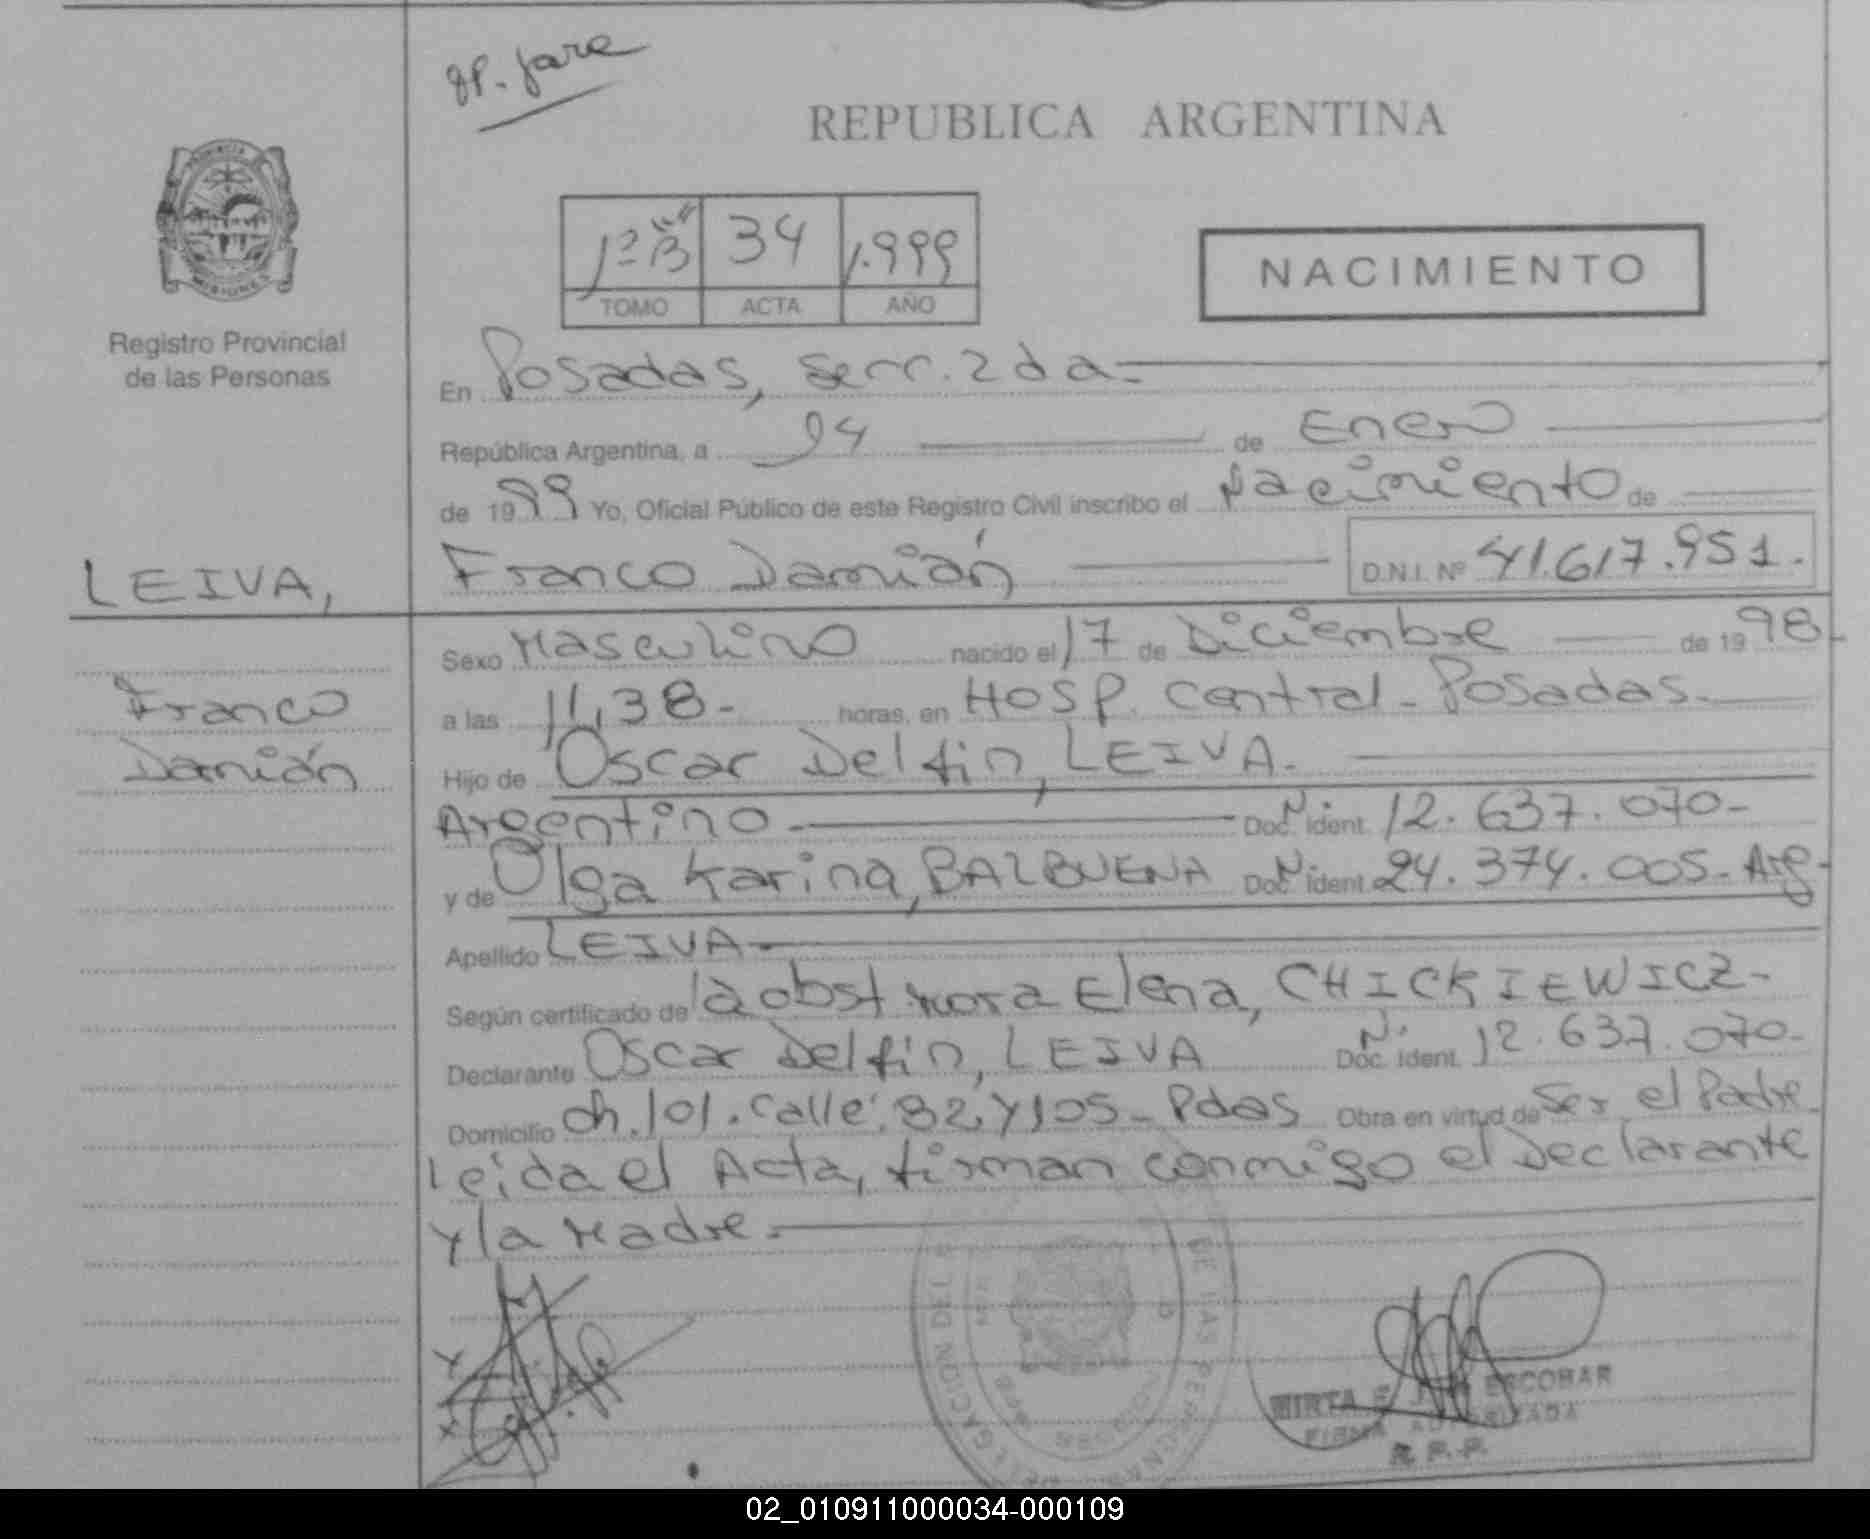 REPUBLICA ARGENTINA
PROVINCIA
MISIONES
Registro Provincial
de las Personas
1º "B" 34 1.999
TOMO ACTA AÑO
NACIMIENTO
En Posadas, secc. 2da.
República Argentina, a 04 de Enero
de 1999 Yo, Oficial Público de este Registro Civil inscribo el Nacimiento de
LEIVA, Franco Damián D.N.I. Nº 41.617.951.
Franco
Damián
Sexo Masculino nacido el 17 de Diciembre de 1998
a las 11,38- horas, en Hosp. Central - Posadas.
Hijo de Oscar Delfin, LEIVA.
Argentino Doc. Nº ident. 12.637.070-
y de Olga Karina, BALBUENA Doc. Nº ident. 24.374.005- Arg-
Apellido LEIVA
Según certificado de la obst. Elena, CHICKIEWICZ-
Declarante Oscar Delfin, LEIVA Doc. Nº ident. 12.637.070-
Domicilio ch. 101. calle: 82 y 105- Pdas Obra en virtud de ser el Padre
Leida el Acta, firman conmigo el Declarante
y la Madre.
DE LAS PERSONAS
DELEGACION
MIRTA E ESCOBAR
FIRMA AUTORIZADA
R. P. P.
02_010911000034-000109